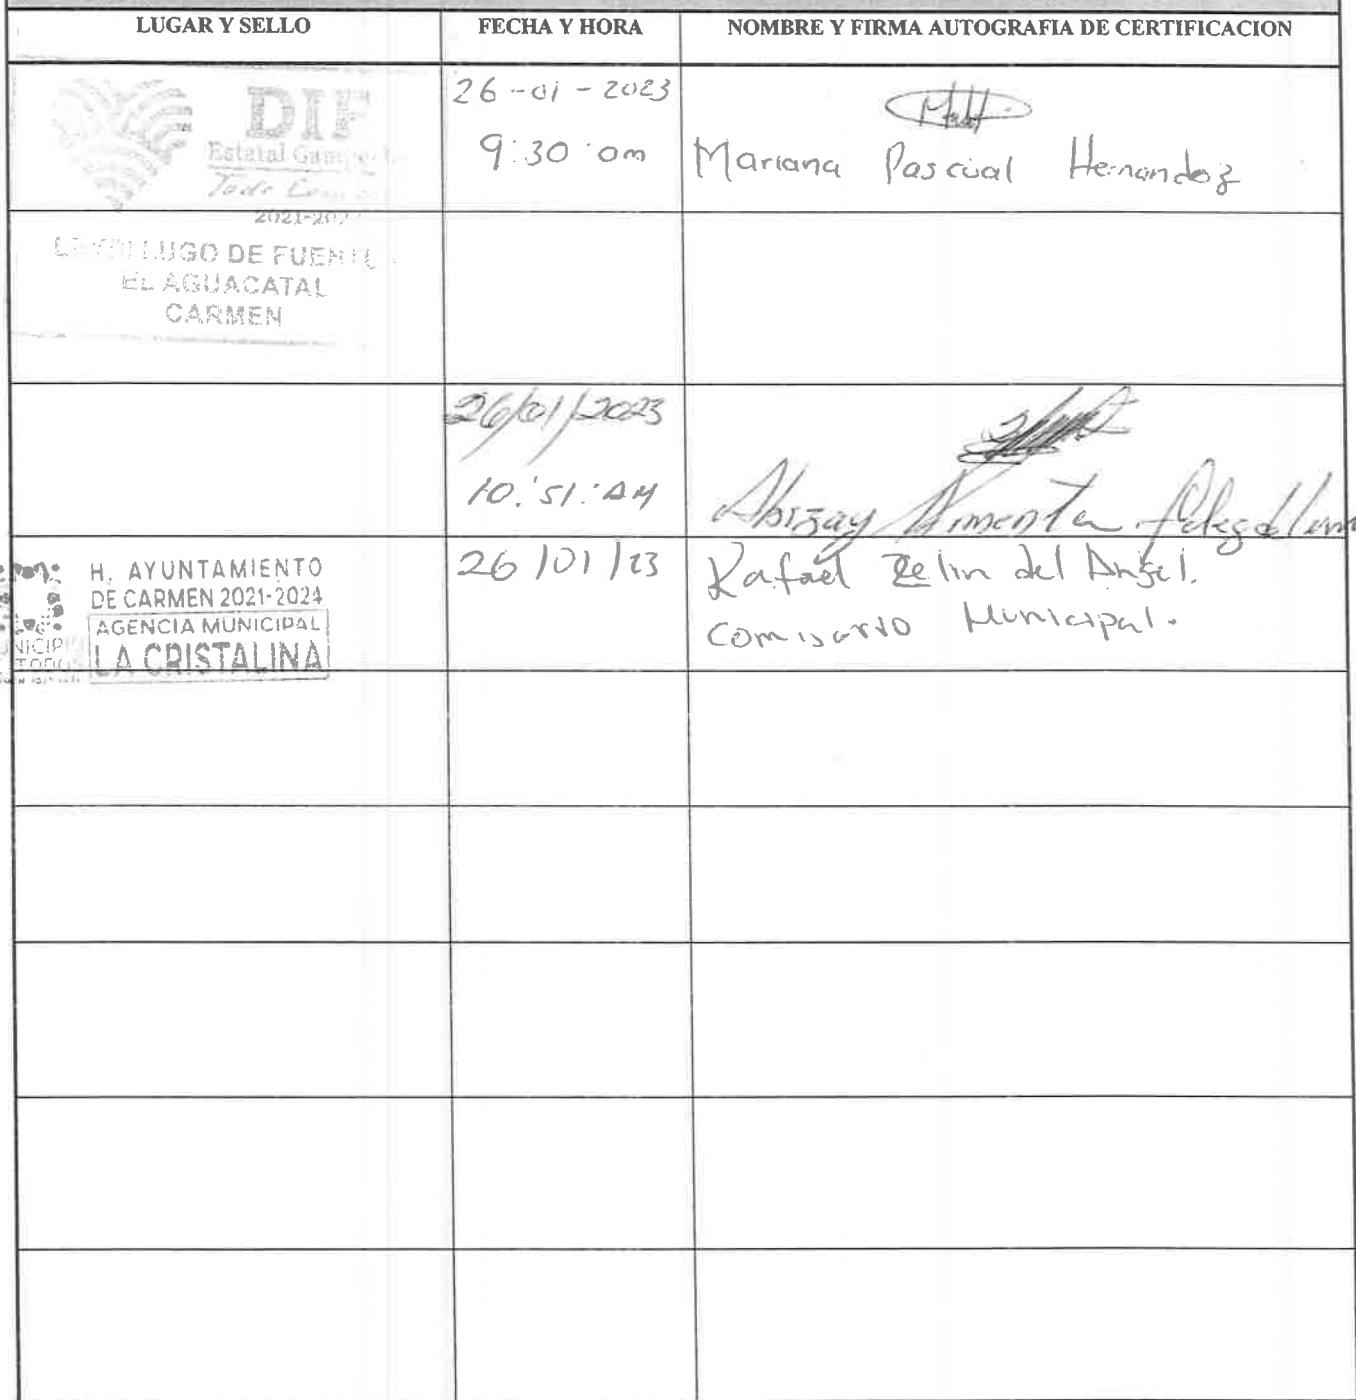 LUGAR Y SELLO
FECHA Y HORA
NOMBRE Y FIRMA AUTOGRAFIA DE CERTIFICACION
DIF
Estatal
2021-202
26-01-2023
9:30 am
Mariana Pascual Hernandez
LUGO DE FUENTE
EL AGUACATAL
CARMEN
26/01/2023
10:51:AM
Abizay Pimenta
H. AYUNTAMIENTO
DE CARMEN 2021-2024
AGENCIA MUNICIPAL
LA CRISTALINA
26/01/23
Rafael Zelin del Angel.
Comisario Municipal.